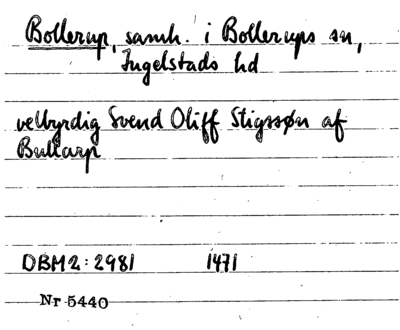 Bollerup, samh. i Bollerups sn,
Ingelstads hd
velbyrdig Svend Oliff Stigssøn af
Bullarp
DBM2:2981 1471
Nr 5440